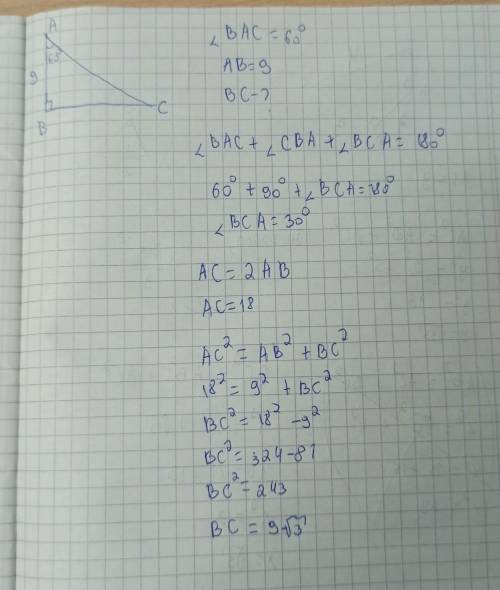 A
60°
9
B
C
∠BAC = 60°
AB = 9
BC - ?
∠BAC + ∠CBA + ∠BCA = 180°
60° + 90° + ∠BCA = 180°
∠BCA = 30°
AC = 2AB
AC = 18
AC² = AB² + BC²
18² = 9² + BC²
BC² = 18² - 9²
BC² = 324 - 81
BC² = 243
BC = 9√3